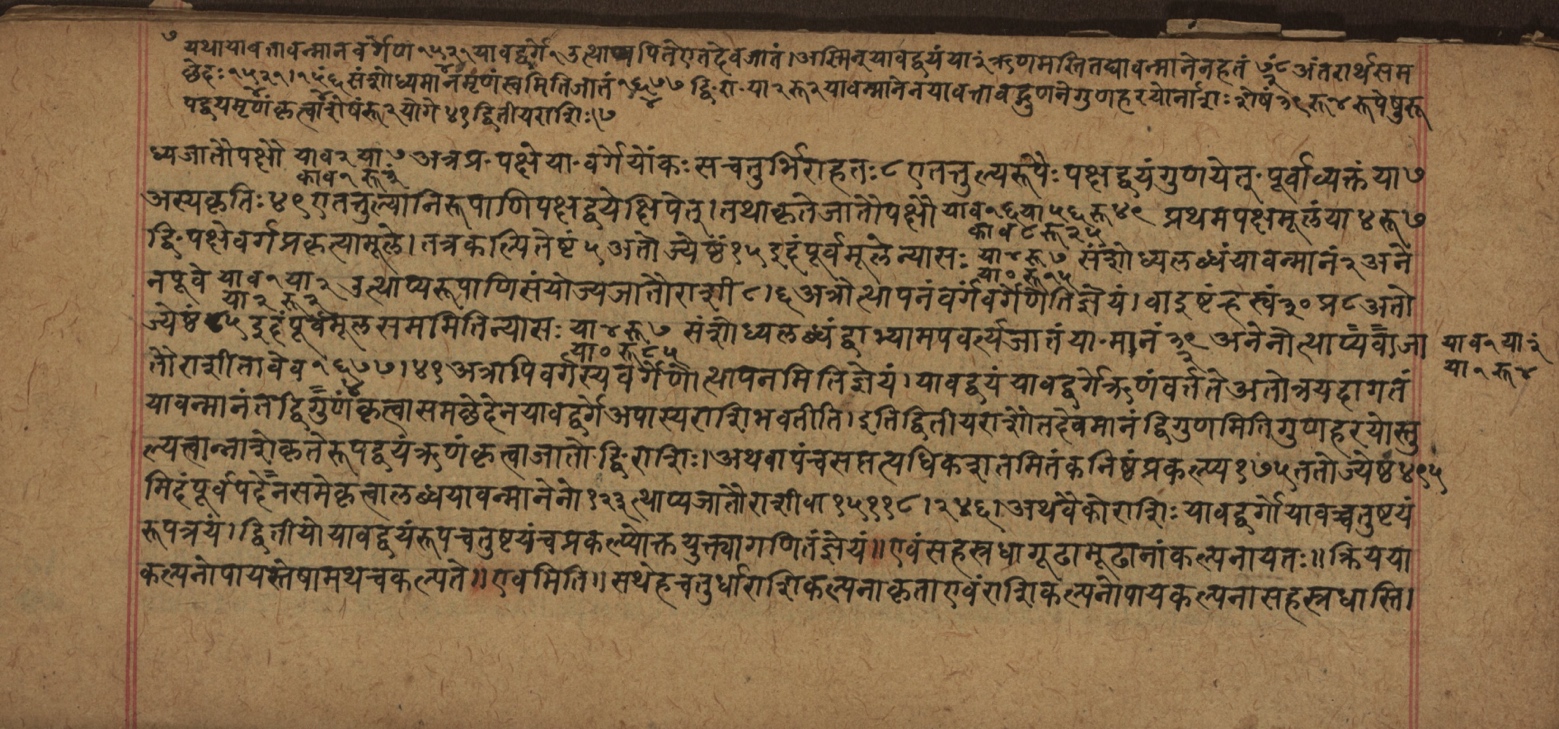 ७ यथायावत्तावन्मानवर्गेण १५२१ यावद्वर्गे १ उत्थाप्य पिते एतदेवजातं। अस्मिन्यावद्वयं या २ं ऋणमस्ति तद्यावन्मानेनहतं ७ं८ अंतरार्थसम
छेदः १५२१। १५६ं संशोध्यमानमृणंस्वमितिजातं १६७७ द्वि॰रा॰या २ रू २ यावन्मानेनयावत्तावद्गुणनेगुणहरयोर्नाशः शेषं ३९ रू ४ रूपेषुरू
पद्वयमृणंकृत्वाशेषंरू २ योगे ४१ द्वितीयराशिः।७
ध्यजातौपक्षौ याव २ या ७ अत्रप्र॰पक्षेया॰वर्गेयोंकःसचतुर्भिराहतः ८ एतत्तुल्यरूपैःपक्षद्वयंगुणयेत्॰पूर्वाव्यक्तंया ७
काव १ रू ३ं
अस्यकृतिः ४९ एतत्तुल्यानिरूपाणिपक्षद्वयेक्षिपेत्।तथाकृतेजातौपक्षौ याव १६ या ५६ रू ४९ प्रथमपक्षमूलंया ४ रू ७
काव ८ रू २५
द्वि॰पक्षेवर्गप्रकृत्यामूले। तत्रकल्पितेष्टं ५ अतोज्येष्ठं १५ इदंपूर्वमूलेन्यासः या ४ रू ७ संशोध्यलब्धंयावन्मानं २ अने
या ० रू १५
नपूर्वे याव १ या २ उत्थाप्यरूपाणिसंयोज्यजातौराशी ८। ६ अत्रोत्थापनंवर्गंवर्गेणेतिज्ञेयं। वाइष्टंह्रस्वं ३० प्र ८ अतो
या २ रू २
ज्येष्ठं ८५ इदंपूर्वमूलसममितिन्यासः या ४ रू ७ संशोध्यलब्धंद्वाभ्यामपवर्त्यजातंया॰मानं ३९ अनेनोत्थाप्यैवंवाजा याव १ या २ं
या ० रू ८५ २ या १ रू ४
तौराशीतावेव १६७७। ४१ अत्रापिवर्गस्यवर्गेणोत्थापनमितिज्ञेयं। यावद्वयंयावद्वर्गेऋणंवर्त्ततेअतोत्रयदागतं
यावन्मानंतद्द्विगुणंकृत्वासमछेदेनयावद्वर्गेअपास्यराशिभवतीति। इतिद्वितीयराशौतदेवमानंद्विगुणमितिगुणहरयोस्तु
ल्यत्वान्नाशेकृतेरूपद्वयंऋणंकृत्वाजातो॰द्वि॰राशिः। अथवापंचसप्तत्यधिकशतमितंकनिष्ठंप्रकल्प्य १७५ ततोज्येष्ठं ४९५
मिदंपूर्वपदेनसमेकृत्वालब्धयावन्मानेनो १२३ त्थाप्यजातौराशीवा १५११८। २४६। अथवैकोराशिः यावद्वर्गोयावच्चतुष्टयं
रूपत्रयं। द्वितीयोयावद्वयंरूपचतुष्टयंचप्रकल्प्योक्तयुक्त्यागणितंज्ञेयं॥ एवंसहस्रधागूढामूढानांकल्पनायतः॥ क्रियया
कल्पनोपायस्तेषामथचकल्पते॥ एवमिति॥ सथेहचतुर्धाराशिकल्पनाकृताएवंराशिकल्पनोपायकल्पनासहस्रधास्ति।